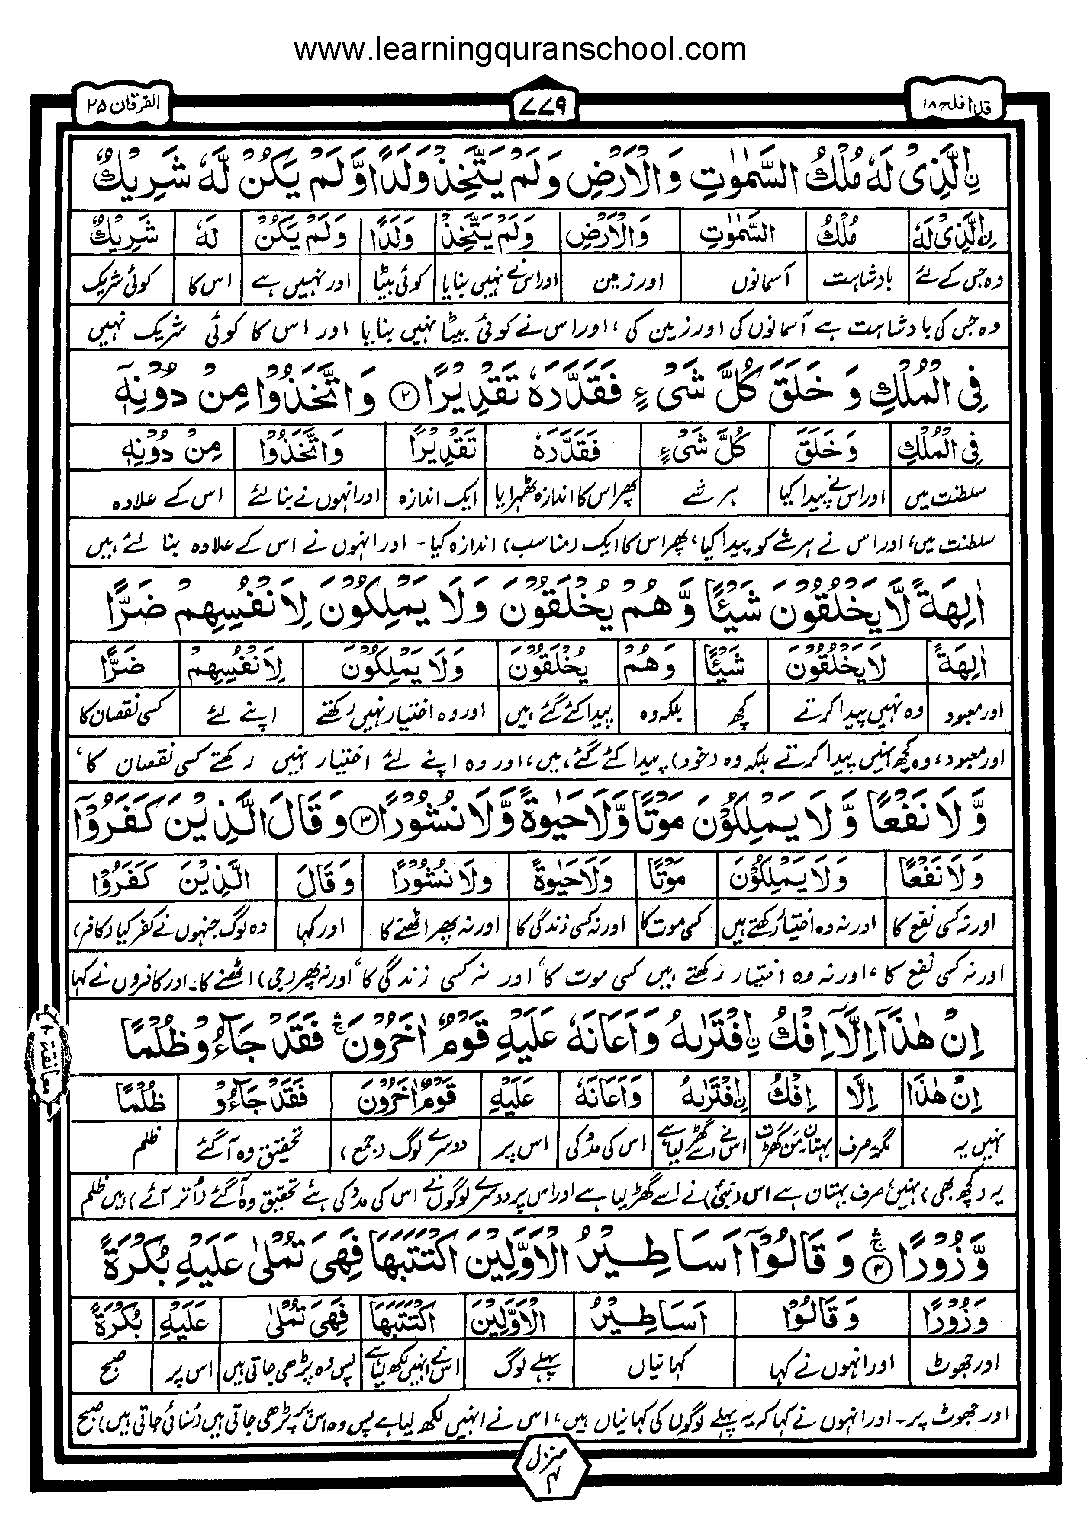 www.learningquranschool.com
الفرقان ۲۵
۷۷۹
قد افلح ۱۸
اِ۟لَّذِیْ لَهٗ مُلْكُ السَّمٰوٰتِ وَالْاَرْضِ وَلَمْ یَتَّخِذْ وَلَدًا وَّلَمْ یَكُنْ لَّهٗ شَرِیْكٌ
اِ۟لَّذِیْ لَهٗ مُلْكُ السَّمٰوٰتِ وَالْاَرْضِ وَلَمْ یَتَّخِذْ وَلَدًا وَلَمْ یَكُنْ لَهٗ شَرِیْكٌ
وہ جس کے لئے بادشاہت آسمانوں اور زمین اور اس نے نہیں بنایا کوئی بیٹا اور نہیں ہے اس کا کوئی شریک
وہ جس کی بادشاہت ہے آسمانوں کی اور زمین کی، اور اس نے کوئی بیٹا نہیں بنایا اور اس کا کوئی شریک نہیں
فِی الْمُلْكِ وَ خَلَقَ كُلَّ شَیْءٍ فَقَدَّرَهٗ تَقْدِیْرًا ۝۲ وَاتَّخَذُوْا مِنْ دُوْنِهٖۤ
فِی الْمُلْكِ وَ خَلَقَ كُلَّ شَیْءٍ فَقَدَّرَهٗ تَقْدِیْرًا وَاتَّخَذُوْا مِنْ دُوْنِهٖۤ
سلطنت میں اور اس نے پیدا کیا ہر شے پھر اس کا اندازہ ٹھہرایا ایک اندازہ اور انہوں نے بنا لئے اس کے علاوہ
سلطنت میں، اور اس نے ہر شے کو پیدا کیا، پھر اس کا ایک (مناسب) اندازہ کیا۔ اور انہوں نے اس کے علاوہ بنا لئے ہیں
اٰلِهَةً لَّا یَخْلُقُوْنَ شَیْـًٔا وَّهُمْ یُخْلَقُوْنَ وَلَا یَمْلِكُوْنَ لِاَنْفُسِهِمْ ضَرًّا
اٰلِهَةً لَا یَخْلُقُوْنَ شَیْـًٔا وَهُمْ یُخْلَقُوْنَ وَلَا یَمْلِكُوْنَ لِاَنْفُسِهِمْ ضَرًّا
اور معبود وہ نہیں پیدا کرتے کچھ بلکہ وہ پیدا کئے گئے ہیں اور وہ اختیار نہیں رکھتے اپنے لئے کسی نقصان کا
اور معبود، وہ کچھ نہیں پیدا کرتے بلکہ وہ (خود) پیدا کئے گئے ہیں، اور وہ اپنے لئے اختیار نہیں رکھتے کسی نقصان کا،
وَّلَا نَفْعًا وَّلَا یَمْلِكُوْنَ مَوْتًا وَّلَا حَیٰوةً وَّلَا نُشُوْرًا ۝۳ وَقَالَ الَّذِیْنَ كَفَرُوْۤا
وَلَا نَفْعًا وَلَا یَمْلِكُوْنَ مَوْتًا وَلَا حَیٰوةً وَلَا نُشُوْرًا وَقَالَ الَّذِیْنَ كَفَرُوْۤا
اور نہ کسی نفع کا اور نہ وہ اختیار رکھتے ہیں کسی موت کا اور نہ کسی زندگی کا اور نہ پھر اٹھنے کا اور کہا وہ لوگ جنہوں نے کفر کیا (کافر)
اور نہ کسی نفع کا، اور نہ وہ اختیار رکھتے ہیں کسی موت کا، اور نہ کسی زندگی کا، اور نہ پھر (جی) اٹھنے کا۔ اور کافروں نے کہا
اِنْ هٰذَاۤ اِلَّاۤ اِفْكُ اِ۟فْتَرٰىهُ وَاَعَانَهٗ عَلَیْهِ قَوْمٌ اٰخَرُوْنَ ۛۚ فَقَدْ جَآءُوْ ظُلْمًا
اِنْ هٰذَاۤ اِلَّا اِفْكُ اِ۟فْتَرٰىهُ وَاَعَانَهٗ عَلَیْهِ قَوْمٌ اٰخَرُوْنَ فَقَدْ جَآءُوْ ظُلْمًا
نہیں یہ مگر صرف بہتان من گھڑت اس نے اسے گھڑ لیا ہے اس کی مدد کی اس پر دوسرے لوگ (جمع) تحقیق وہ آگئے ظلم
یہ (کچھ بھی) نہیں، صرف بہتان ہے اس (نبی) نے اسے گھڑ لیا ہے اور اس پر دوسرے لوگوں نے اس کی مدد کی ہے تحقیق وہ آگئے (اتر آئے) ہیں ظلم
معانقة
وَّزُوْرًا ۛۚ ۝۴ وَقَالُوْۤا اَسَاطِیْرُ الْاَوَّلِیْنَ اكْتَتَبَهَا فَهِیَ تُمْلٰى عَلَیْهِ بُكْرَةً
وَزُوْرًا وَقَالُوْا اَسَاطِیْرُ الْاَوَّلِیْنَ اكْتَتَبَهَا فَهِیَ تُمْلٰى عَلَیْهِ بُكْرَةً
اور جھوٹ اور انہوں نے کہا کہانیاں پہلے لوگ اس نے انہیں لکھ لیا ہے پس وہ پڑھی جاتی ہیں اس پر صبح
اور جھوٹ پر۔ اور انہوں نے کہا کہ یہ پہلے لوگوں کی کہانیاں ہیں، اس نے انہیں لکھ لیا ہے پس وہ اس پر پڑھی جاتی ہیں (سنائی جاتی ہیں) صبح
منزل ۴